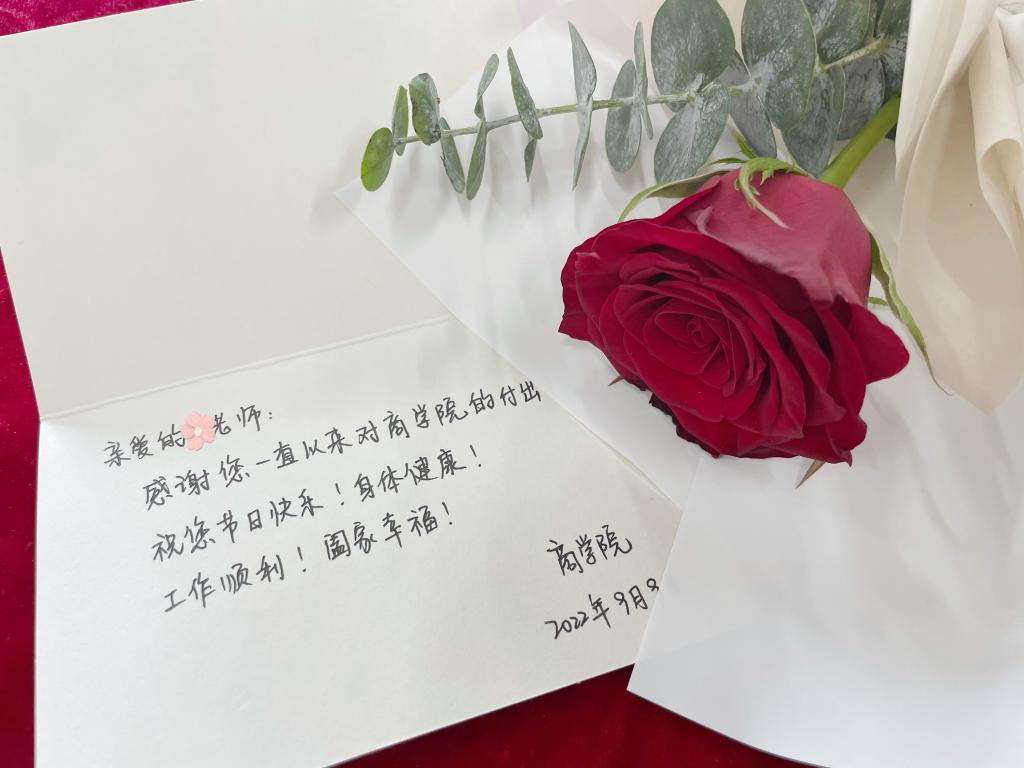 亲爱的老师：
感谢您一直以来对商学院的付出
祝您节日快乐！身体健康！
工作顺利！阖家幸福！
商学院
2022年9月